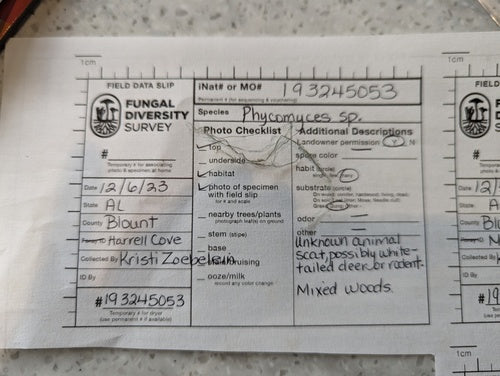 1cm
1cm
FIELD DATA SLIP
iNat# or MO# 193245053
Permanent # (for sequencing & vouchering)
FUNGAL
DIVERSITY
SURVEY
Species Phycomyces sp.
Photo Checklist
top
underside
habitat
photo of specimen
with field slip
# for # and scale
nearby trees/plants
photograph leaf(s) on ground
stem (stipe)
base
bruising
ooze/milk
record any color change
Additional Descriptions
Landowner permission Y N
spore color
habit (circle)
single, few, many
substrate (circle)
On wood: conifer, hardwood, living, dead;
Grass, Dung, other -
odor
other
Unknown animal
scat, possibly white-
tailed deer or rodent.
Mixed woods
#
Temporary # for associating
photo & specimen at home
Date 12/6/23
State AL
County Blount
Harrell Cove
Collected By Kristi Zoebelein
ID By
#193245053
Temporary # for dryer
(use permanent # if available)
FIELD
#
Date 12/
State A
County B
Collected By
ID By
#19
1cm